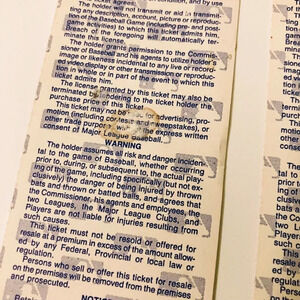 ticket agrees:
The holder will not transmit or aid in transmit-
ting any description, account, picture or reproduc-
tion of the Baseball Game (including pre- post-
Breach of the foregoing will automatically ter-
minate this license.
The holder grants permission to the Commis-
sioner of Baseball and his agents to utilize holder's
image or likeness incidental to any live or record-
ed video display or other transmission or reproduc-
tion in whole or in part of the event to which this
ticket admits him.
The license granted by this ticket may also be
terminated by tendering to the ticket holder the
purchase price of this ticket.
This ticket may not be used for advertising, pro-
motion (including contests and sweepstakes), or
other trade purposes without the express written
consent of Major League Baseball.
WARNING
The holder assumes all risk and danger inciden-
tal to the game of Baseball, whether occurring
prior to, during, or subsequent to, the actual play-
ing of the game, including specifically (but not ex-
clusively) the danger of being injured by thrown
bats and thrown or batted balls, and agrees that
the Commissioner, his agents and employees, the
two Leagues, the Major League Clubs, and
Players are not liable for injuries resulting from
such causes.
This ticket must not be resold or offered for
resale at a premium in excess of the amount allow-
ed by any Federal, Provincial or local law or
regulation.
Persons who sell or offer this ticket for resale
on the premises will be removed from the premises
and prosecuted.